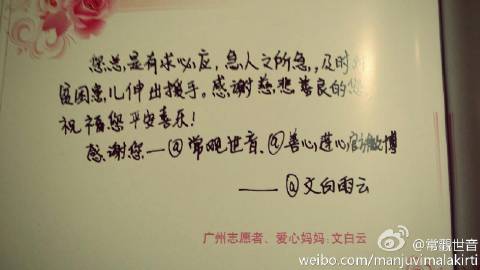 您总是有求必应，急人之所急，及时对
贫困患儿伸出援手。感谢慈悲善良的您
祝福您平安喜乐！
感谢您——@常观世音、@善心莲心官方微博
——@文白雨云
广州志愿者、爱心妈妈:文白云
@常觀世音
weibo.com/manjuvimalakirti